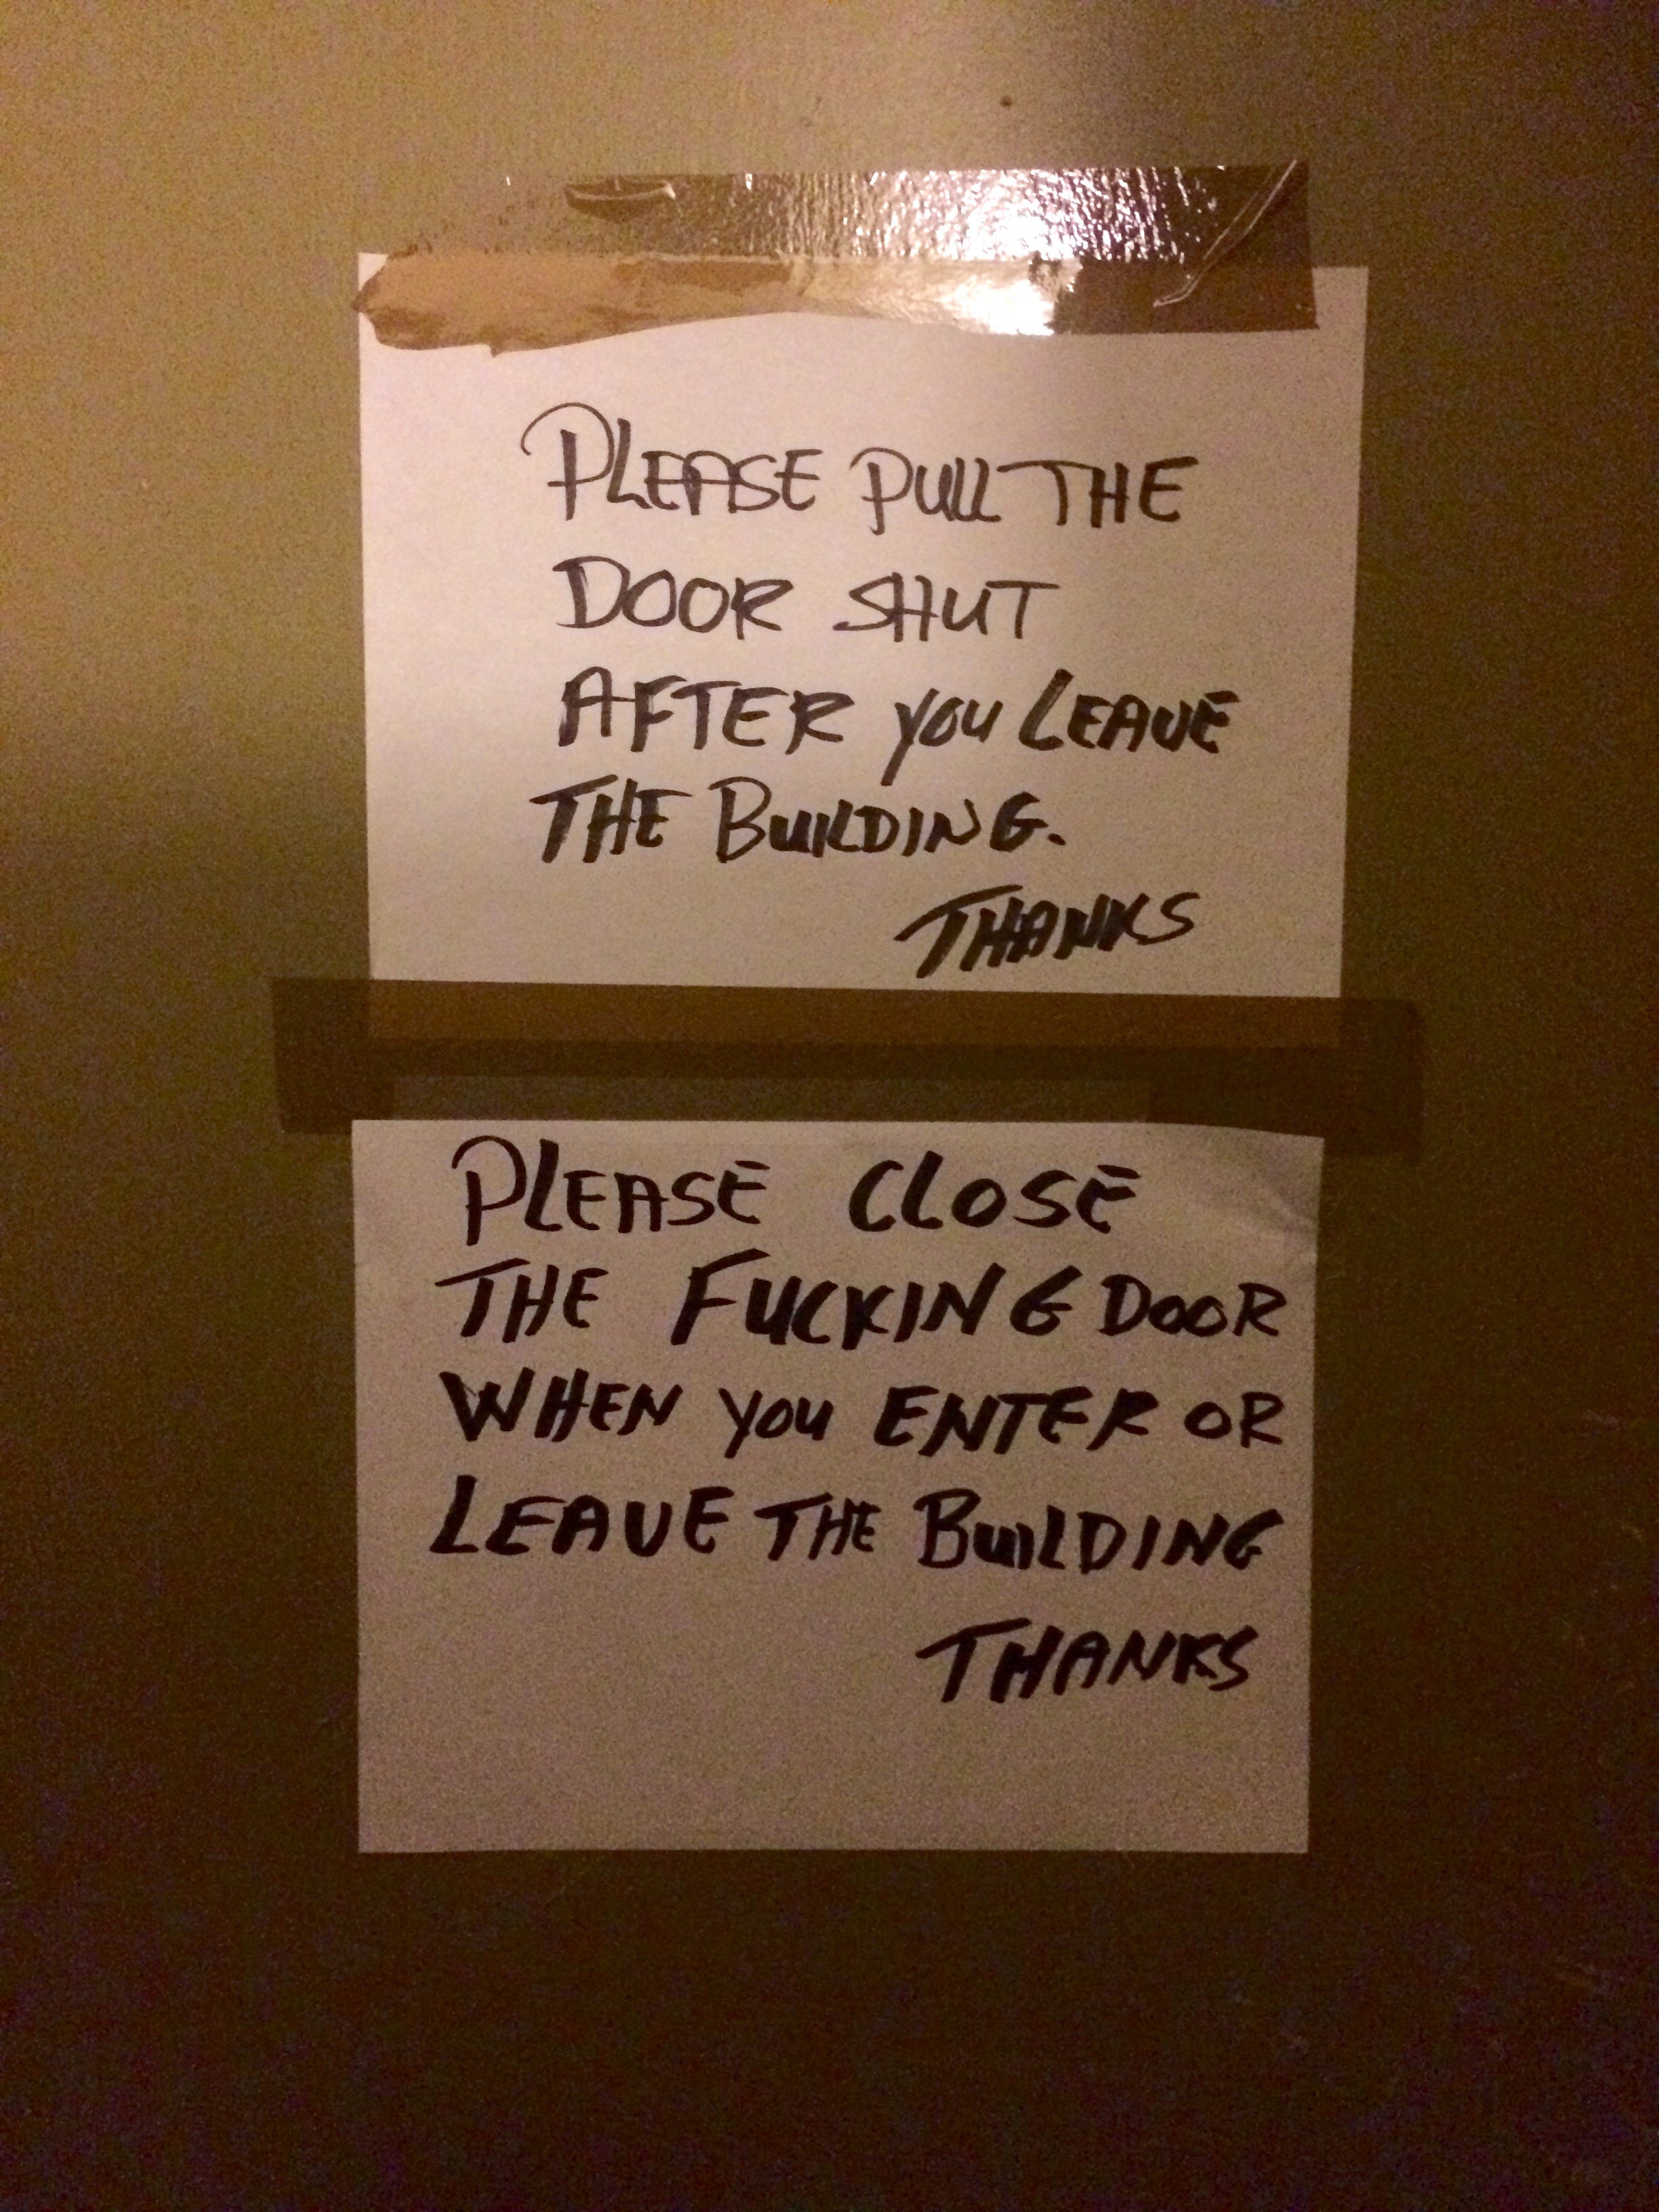 PLEASE PULL THE
DOOR SHUT
AFTER YOU LEAVE
THE BUILDING.
THANKS
PLEASE CLOSE
THE FUCKING DOOR
WHEN YOU ENTER OR
LEAVE THE BUILDING
THANKS